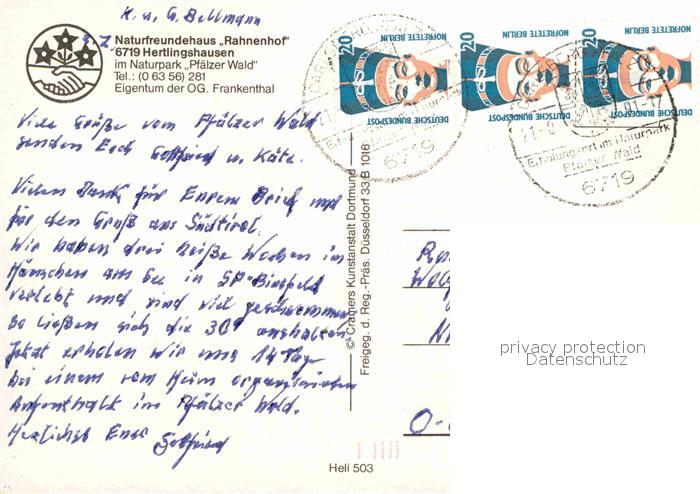 K. u. G. Bellmann
z.Z.
Naturfreundehaus „Rahnenhof"
6719 Hertlingshausen
im Naturpark „Pfälzer Wald"
Tel.: (0 63 56) 281
Eigentum der OG. Frankenthal
Viele Grüße vom Pfälzer Wald
senden Euch Gottfried u. Käte.
Vielen Dank für Euren Brief und
für den Gruß aus Südtirol.
Wir haben drei heiße Wochen im
Häuschen am See in
verlebt und sind viel geschwommen
So ließen sich die 30° aushalten.
Jetzt erholen wir uns 14 Tage
bei einem vom Heim organisierten
Aufenthalt im Pfälzer Wald.
Herzlichst Euer Gottfried
© Cramers Kunstanstalt Dortmund
Freigeg. d. Reg.-Präs. Düsseldorf 33 B 1016
Heli 503
20
NOFRETETE BERLIN
DEUTSCHE BUNDESPOST
20
NOFRETETE BERLIN
DEUTSCHE BUNDESPOST
20
NOFRETETE BERLIN
DEUTSCHE BUNDESPOST
Erholungsort im Naturpark
6719
91-17
Erholungsort im Naturpark
Pfälzer Wald
6719
O-
privacy protection
Datenschutz